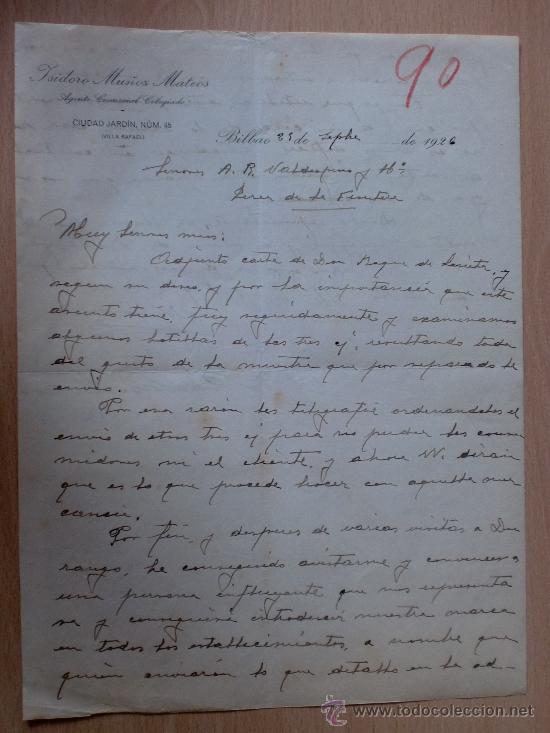 90
Isidoro Muñoz Mateos
Agente Comercial Colegiado
CIUDAD JARDÍN, NÚM. 45
(VILLA RAFAEL)
Bilbao 25 de Septbre de 1926
Señores A. R. Valdespino y Hº
Jerez de la Frontera
Muy Señores mios:
Adjunto carta de Don Roque de y
segun su deseo, y por la importancia que este
asunto tiene, fuy seguidamente y examinamos
algunas botellas de las tres cj, resultando todas
del gusto de la muestra que por separado le
envio.
Por esa razón les telegrafié ordenandoles el
envio de otras tres cj para no perder los consu
midores ni el cliente, y ahora VV. dirán
que es lo que procede hacer con aquella mer
cancia.
Por fin, y despues de varias visitas a Du
rango, he conseguido avistarme y convencer a
una persona influyente que nos representa
ra y conseguirá introducir nuestra marca
en todos los establecimientos, a nombre de
quien enviarán lo que detallo en la ad-
todocoleccion
http://www.todocoleccion.net